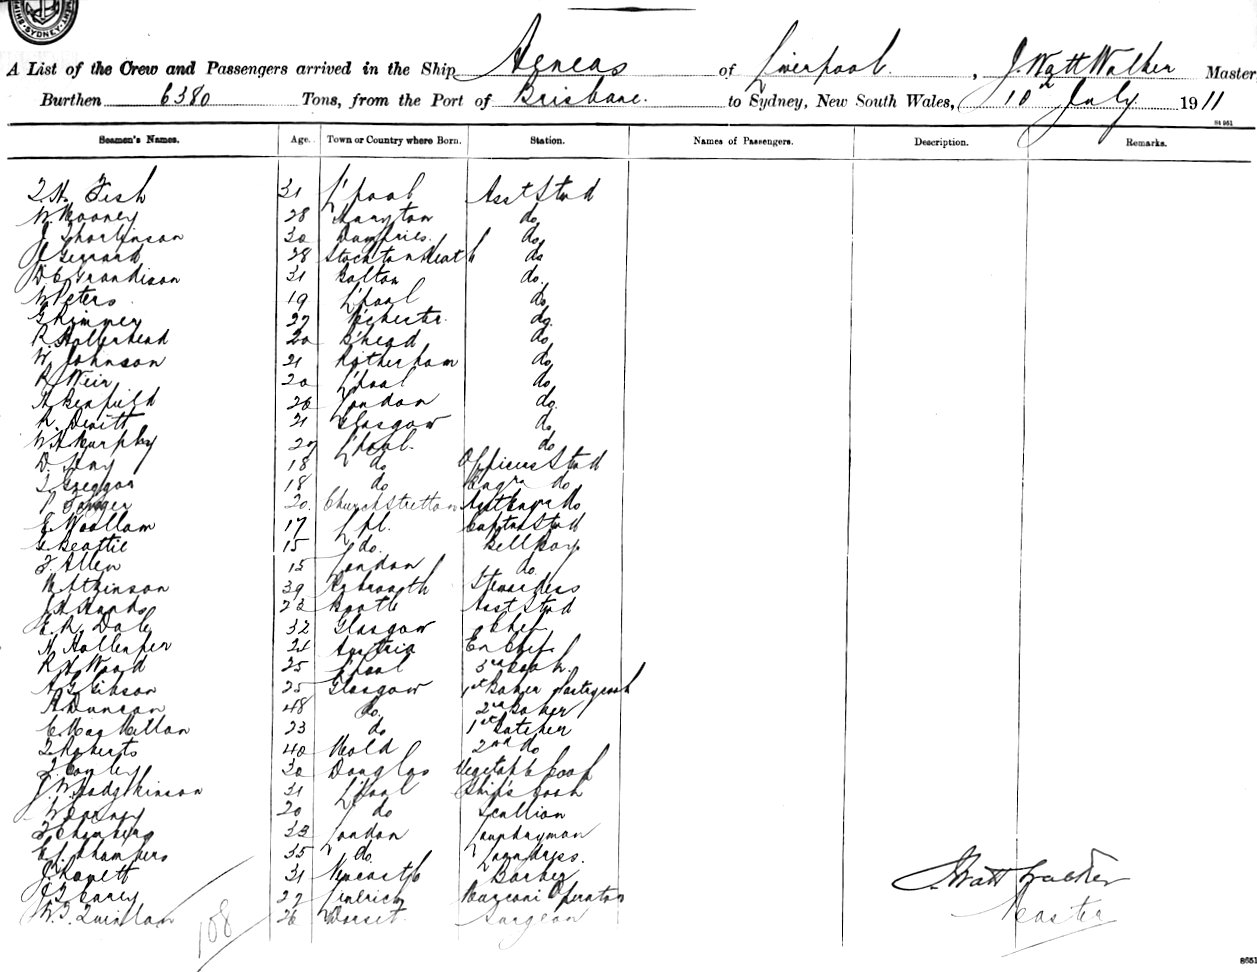 SYDNEY
A List of the Crew and Passengers arrived in the Ship Aeneas of Liverpool, J. Watt Walker Master
Burthen 6380 Tons, from the Port of Brisbane. to Sydney, New South Wales, 10th July 1911
Seamen's Names. Age. Town or Country where Born. Station. Names of Passengers. Description. Remarks.
Fish 31 L'pool Asst Stwd
W. Mooney 28 do
30 Dumfries. do
J Gerrard 28 Stockton Heath do
D C Grandison 31 Bolton do.
W Peters 19 L'pool do
G Rimmer 27 M'chester. do.
R. Hollerhead 20 B'head do
W. Johnson 21 Rotherham do
R Weir 20 L'pool do
A Benfield 26 London do.
R. Devitt 21 Glasgow do
W H Murphy 27 L'pool. do
D. Hay 18 do Officers Stwd
18 do Engrs do
20. Church Stretton Asst Engrs do
E Woollam 17 Lpl. Captns Stwd
G Beattie 15 do. Bell Boy
F. Allen 15 London do.
M Atkinson 39 Stewardess
23 Bootle Asst Stwd
E. R. Dale 32 Glasgow Chef
H Hollenper 24 Austria
R H Wood 25 L'pool 3rd Cook.
A G Gibson 25 Glasgow 1st Baker
A Duncan 48 do. 2nd Baker
C MacMillan 23 do 1st Butcher
Roberts 40 Mold 2nd do
30 Douglas Vegetable Cook
J. W. Hodgkinson 31 L'pool Ship's Cook
20 do Scullion
F Chambers 33 London Laundryman
E L Chambers 35 do. Laundress.
31 Newcastle Barber
J G Carey 27 Limerick Marconi Operator
W. F. Quinlan 26 Dorset. Surgeon
108
J. Watt Walker
Master